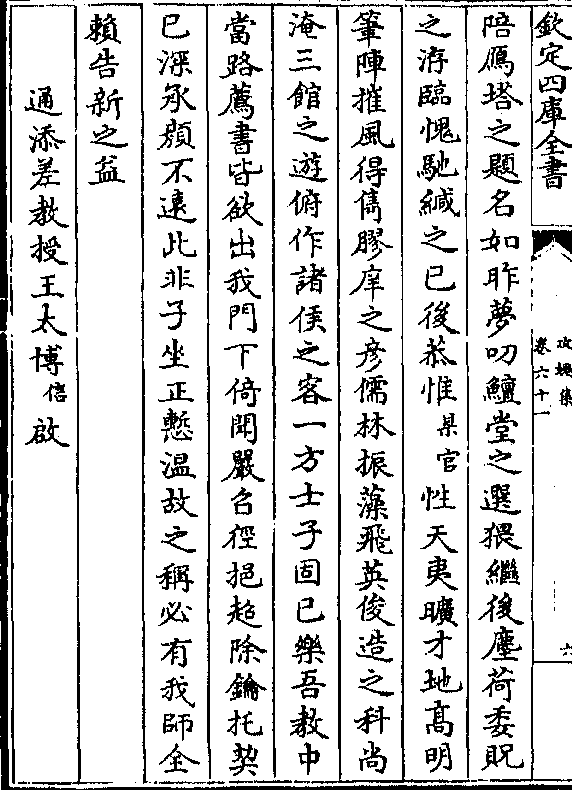 欽定四庫全書
攻媿集
卷六十一
六
陪鴈塔之題名如昨夢叨鱣堂之選猥繼後塵荷委貺
之洊臨愧馳緘之已後恭惟某官性天夷曠才地髙明
筆陣摧風得雋膠庠之彦儒林振藻飛英俊造之科尚
淹三館之遊俯作諸侯之客一方士子固已樂吾教中
當路薦書皆欲出我門下倚聞嚴召徑挹超除鑰托契
已深承顔不遠此非子坐正慙温故之稱必有我師全
頼告新之益
通添差教授王太博信啟